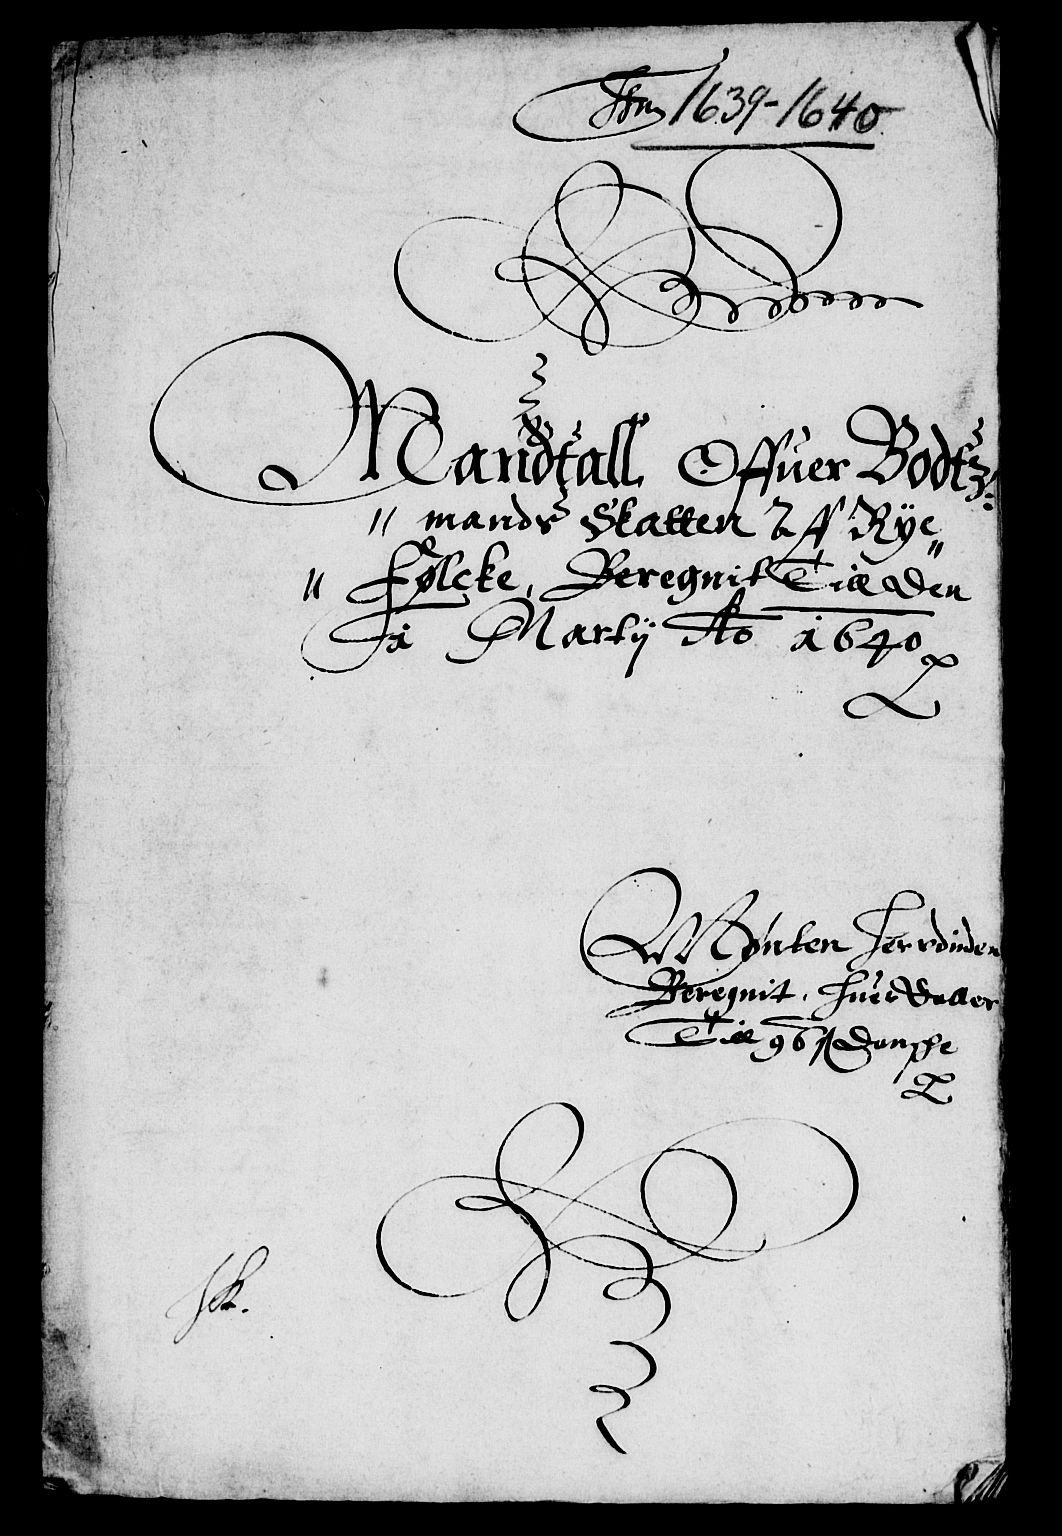 1639-1640
Mandtall Offuer Bodtz
mands Skatten Aff Rÿe
Følcke, Beregnit Till Den
1 Martij Ao 1640
Mÿnten herrdinden
Beregnit, huer Daller
Till 96 ß Danske